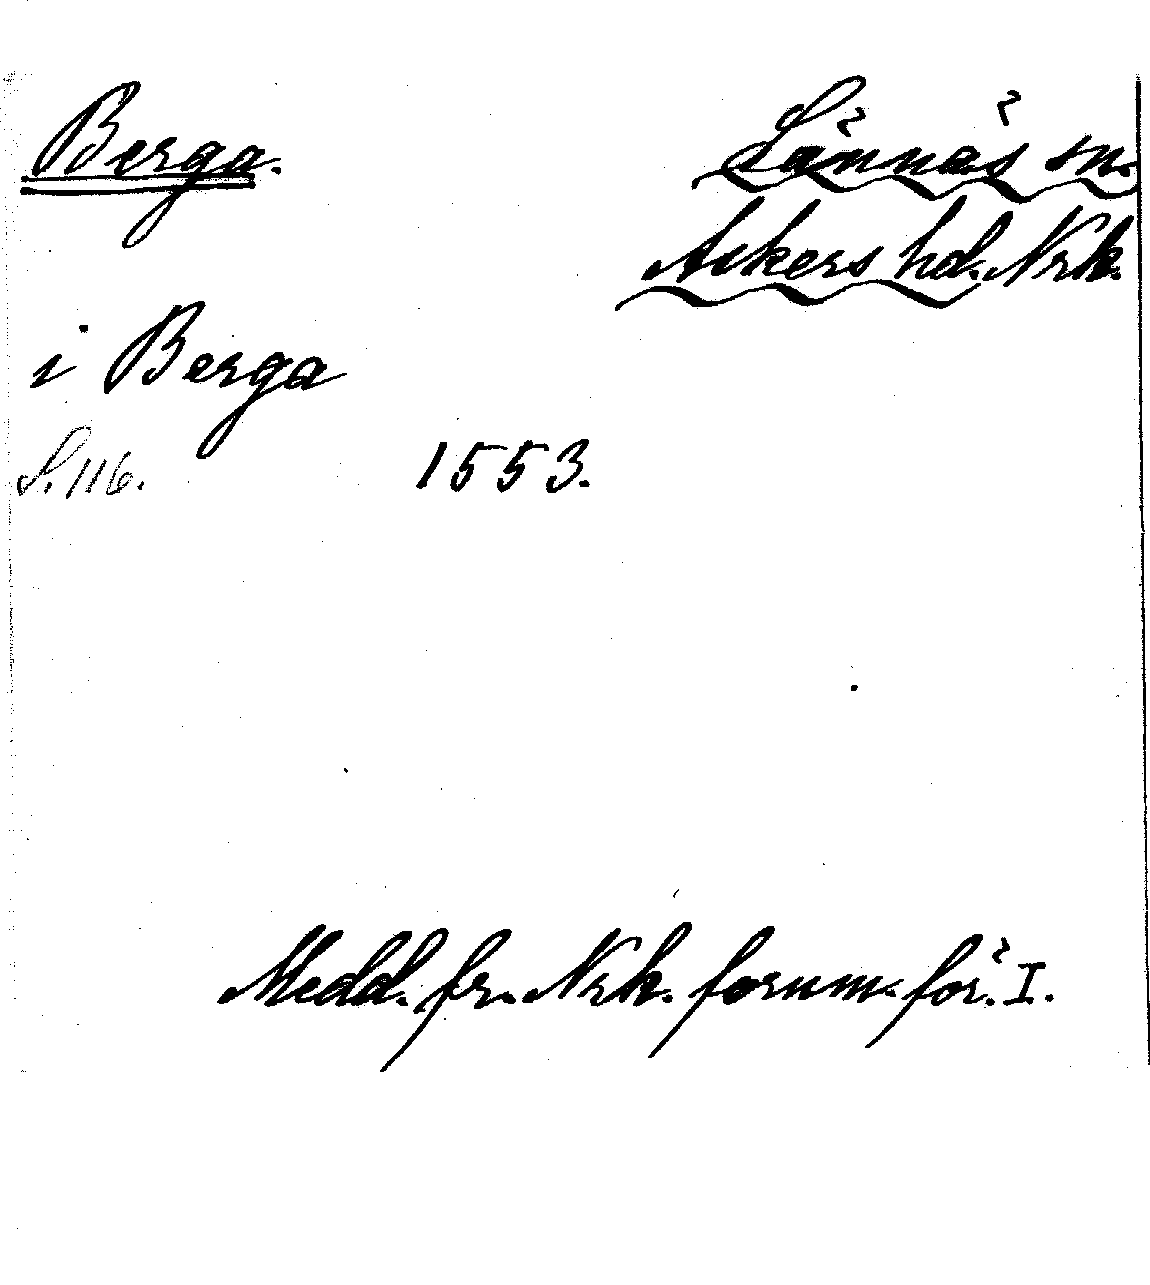 Berga.
Lännäs sn.
Askers hd. Nrk.
i Berga
S. 116. 1553.
Medd. fr. Nrk. fornm.-för. I.